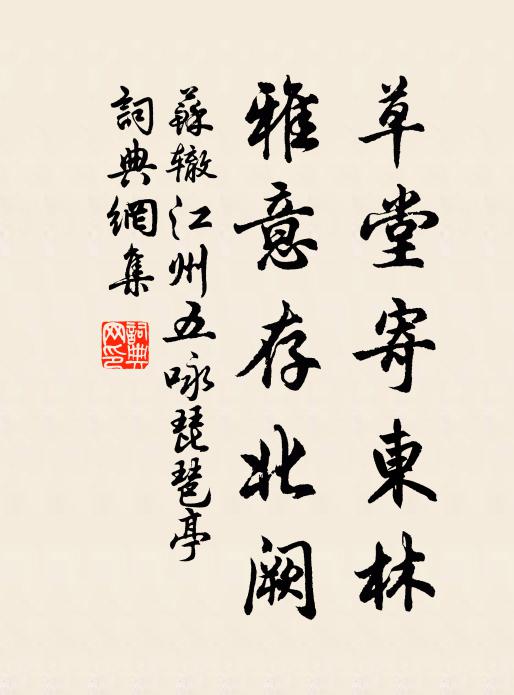 草堂寄東林
雅意存北阙
蘇辙江州五咏琵琶亭
詞典網集
詞典網印